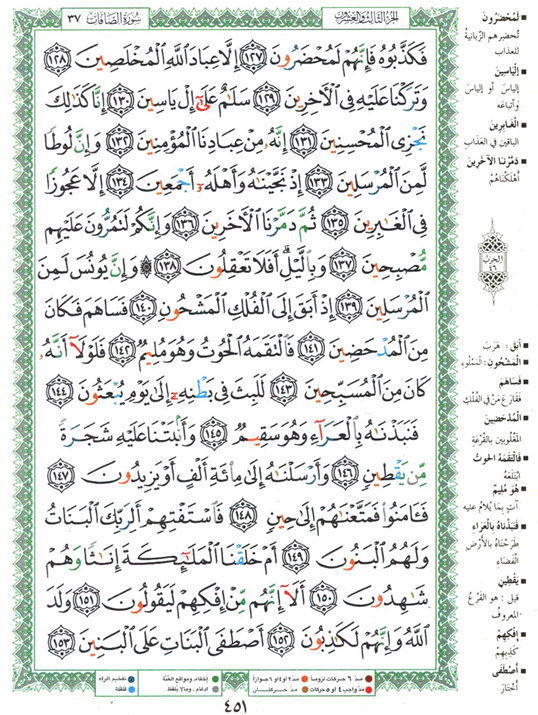 سُورَةُ الصَّافَّاتِ ٣٧
الجزء الثالث والعشرون
فَكَذَّبُوهُ فَإِنَّهُمْ لَمُحْضَرُونَ ١٢٧ إِلَّا عِبَادَ ٱللَّهِ ٱلْمُخْلَصِينَ ١٢٨
وَتَرَكْنَا عَلَيْهِ فِى ٱلْآخِرِينَ ١٢٩ سَلَٰمٌ عَلَىٰٓ إِلْ يَاسِينَ ١٣٠ إِنَّا كَذَٰلِكَ
نَجْزِى ٱلْمُحْسِنِينَ ١٣١ إِنَّهُۥ مِنْ عِبَادِنَا ٱلْمُؤْمِنِينَ ١٣٢ وَإِنَّ لُوطًا
لَّمِنَ ٱلْمُرْسَلِينَ ١٣٣ إِذْ نَجَّيْنَٰهُ وَأَهْلَهُۥٓ أَجْمَعِينَ ١٣٤ إِلَّا عَجُوزًا
فِى ٱلْغَٰبِرِينَ ١٣٥ ثُمَّ دَمَّرْنَا ٱلْآخَرِينَ ١٣٦ وَإِنَّكُمْ لَتَمُرُّونَ عَلَيْهِم
مُّصْبِحِينَ ١٣٧ وَبِٱلَّيْلِ ۗ أَفَلَا تَعْقِلُونَ ١٣٨ ۞ وَإِنَّ يُونُسَ لَمِنَ
ٱلْمُرْسَلِينَ ١٣٩ إِذْ أَبَقَ إِلَى ٱلْفُلْكِ ٱلْمَشْحُونِ ١٤٠ فَسَاهَمَ فَكَانَ
مِنَ ٱلْمُدْحَضِينَ ١٤١ فَٱلْتَقَمَهُ ٱلْحُوتُ وَهُوَ مُلِيمٌ ١٤٢ فَلَوْلَآ أَنَّهُۥ
كَانَ مِنَ ٱلْمُسَبِّحِينَ ١٤٣ لَلَبِثَ فِى بَطْنِهِۦٓ إِلَىٰ يَوْمِ يُبْعَثُونَ ١٤٤
فَنَبَذْنَٰهُ بِٱلْعَرَآءِ وَهُوَ سَقِيمٌ ١٤٥ وَأَنۢبَتْنَا عَلَيْهِ شَجَرَةً
مِّن يَقْطِينٍ ١٤٦ وَأَرْسَلْنَٰهُ إِلَىٰ مِا۟ئَةِ أَلْفٍ أَوْ يَزِيدُونَ ١٤٧
فَـَٔامَنُوا۟ فَمَتَّعْنَٰهُمْ إِلَىٰ حِينٍ ١٤٨ فَٱسْتَفْتِهِمْ أَلِرَبِّكَ ٱلْبَنَاتُ
وَلَهُمُ ٱلْبَنُونَ ١٤٩ أَمْ خَلَقْنَا ٱلْمَلَٰٓئِكَةَ إِنَٰثًا وَهُمْ
شَٰهِدُونَ ١٥٠ أَلَآ إِنَّهُم مِّنْ إِفْكِهِمْ لَيَقُولُونَ ١٥١ وَلَدَ
ٱللَّهُ وَإِنَّهُمْ لَكَٰذِبُونَ ١٥٢ أَصْطَفَى ٱلْبَنَاتِ عَلَى ٱلْبَنِينَ ١٥٣
لَمُحْضَرُونَ
تُحضِرهم الزّبانية
للعذاب
إِلْيَاسِينَ
إلياسَ أو إلياسَ
وأتباعه
الْغَابِرِينَ
الباقين في العَذَاب
دَمَّرْنَا الآخَرِينَ
أهْلَكْنَاهُمْ
الحزب
٤٦
أَبَقَ : هَرَبَ
الْمَشْحُونِ : المَمْلُوءِ
فَسَاهَمَ
فقارَعَ مَنْ في الفُلْك
الْمُدْحَضِينَ
المَغْلُوبين بالقُرْعَةِ
فَالْتَقَمَهُ الحوتُ
ابْتَلَعَهُ
هُوَ مُلِيمٌ
آتٍ بِمَا يُلَامُ عليه
فَنَبَذْنَاهُ بِالْعَرَاءِ
طرَحْنَاهُ بالأرْضِ
الفَضَاءِ
يَقْطِينٍ
قيل : هو القَرْعُ
المعروف
إِفْكِهِمْ
كَذِبِهِمْ
أَصْطَفَى
أخْتَارَ
مدّ ٦ حركات لزوماً مدّ ٢ أو ٤ أو ٦ جوازاً إخفاء، ومواقع الغنّة تفخيم الراء
مدّ واجب ٤ أو ٥ حركات مدّ حركتان إدغام، وما لا يلفظ قلقلة
٤٥١